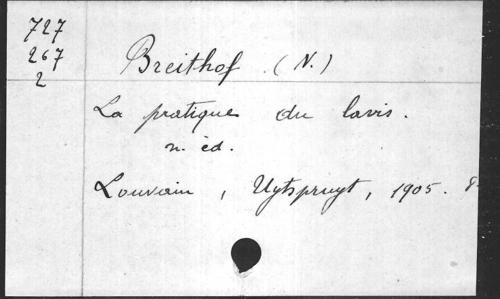 727
267
2
Breithof (N.)
La pratique du lavis.
n. éd.
Louvain, Uytspruyt, 1905. 8